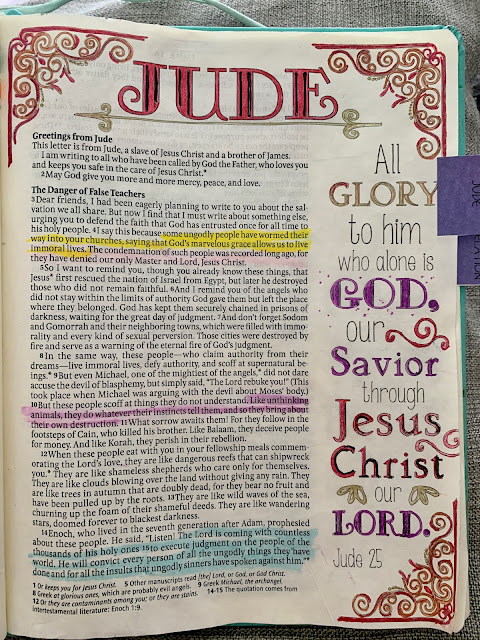 JUDE
Greetings from Jude
This letter is from Jude, a slave of Jesus Christ and a brother of James.
I am writing to all who have been called by God the Father, who loves you
and keeps you safe in the care of Jesus Christ.*
2May God give you more and more mercy, peace, and love.
The Danger of False Teachers
3Dear friends, I had been eagerly planning to write to you about the sal-
vation we all share. But now I find that I must write about something else,
urging you to defend the faith that God has entrusted once for all time to
his holy people. 4I say this because some ungodly people have wormed their
way into your churches, saying that God's marvelous grace allows us to live
immoral lives. The condemnation of such people was recorded long ago, for
they have denied our only Master and Lord, Jesus Christ.
5So I want to remind you, though you already know these things, that
Jesus* first rescued the nation of Israel from Egypt, but later he destroyed
those who did not remain faithful. 6And I remind you of the angels who
did not stay within the limits of authority God gave them but left the place
where they belonged. God has kept them securely chained in prisons of
darkness, waiting for the great day of judgment. 7And don't forget Sodom
and Gomorrah and their neighboring towns, which were filled with immo-
rality and every kind of sexual perversion. Those cities were destroyed by
fire and serve as a warning of the eternal fire of God's judgment.
8In the same way, these people—who claim authority from their
dreams—live immoral lives, defy authority, and scoff at supernatural be-
ings.* 9But even Michael, one of the mightiest of the angels,* did not dare
accuse the devil of blasphemy, but simply said, "The Lord rebuke you!" (This
took place when Michael was arguing with the devil about Moses' body.)
10But these people scoff at things they do not understand. Like unthinking
animals, they do whatever their instincts tell them, and so they bring about
their own destruction. 11What sorrow awaits them! For they follow in the
footsteps of Cain, who killed his brother. Like Balaam, they deceive people
for money. And like Korah, they perish in their rebellion.
12When these people eat with you in your fellowship meals commem-
orating the Lord's love, they are like dangerous reefs that can shipwreck
you.* They are like shameless shepherds who care only for themselves.
They are like clouds blowing over the land without giving any rain. They
are like trees in autumn that are doubly dead, for they bear no fruit and
have been pulled up by the roots. 13They are like wild waves of the sea,
churning up the foam of their shameful deeds. They are like wandering
stars, doomed forever to blackest darkness.
14Enoch, who lived in the seventh generation after Adam, prophesied
about these people. He said, "Listen! The Lord is coming with countless
thousands of his holy ones 15to execute judgment on the people of the
world. He will convict every person of all the ungodly things they have
done and for all the insults that ungodly sinners have spoken against him."*
1 Or keeps you for Jesus Christ. 5 Other manuscripts read [the] Lord, or God, or God Christ.
8 Greek at glorious ones, which are probably evil angels. 9 Greek Michael, the archangel.
12 Or they are contaminants among you; or they are stains. 14-15 The quotation comes from
intertestamental literature: Enoch 1:9.
All
GLORY
to him
who alone is
GOD,
our
Savior
through
Jesus
Christ
our
LORD.
Jude 25
JUDE